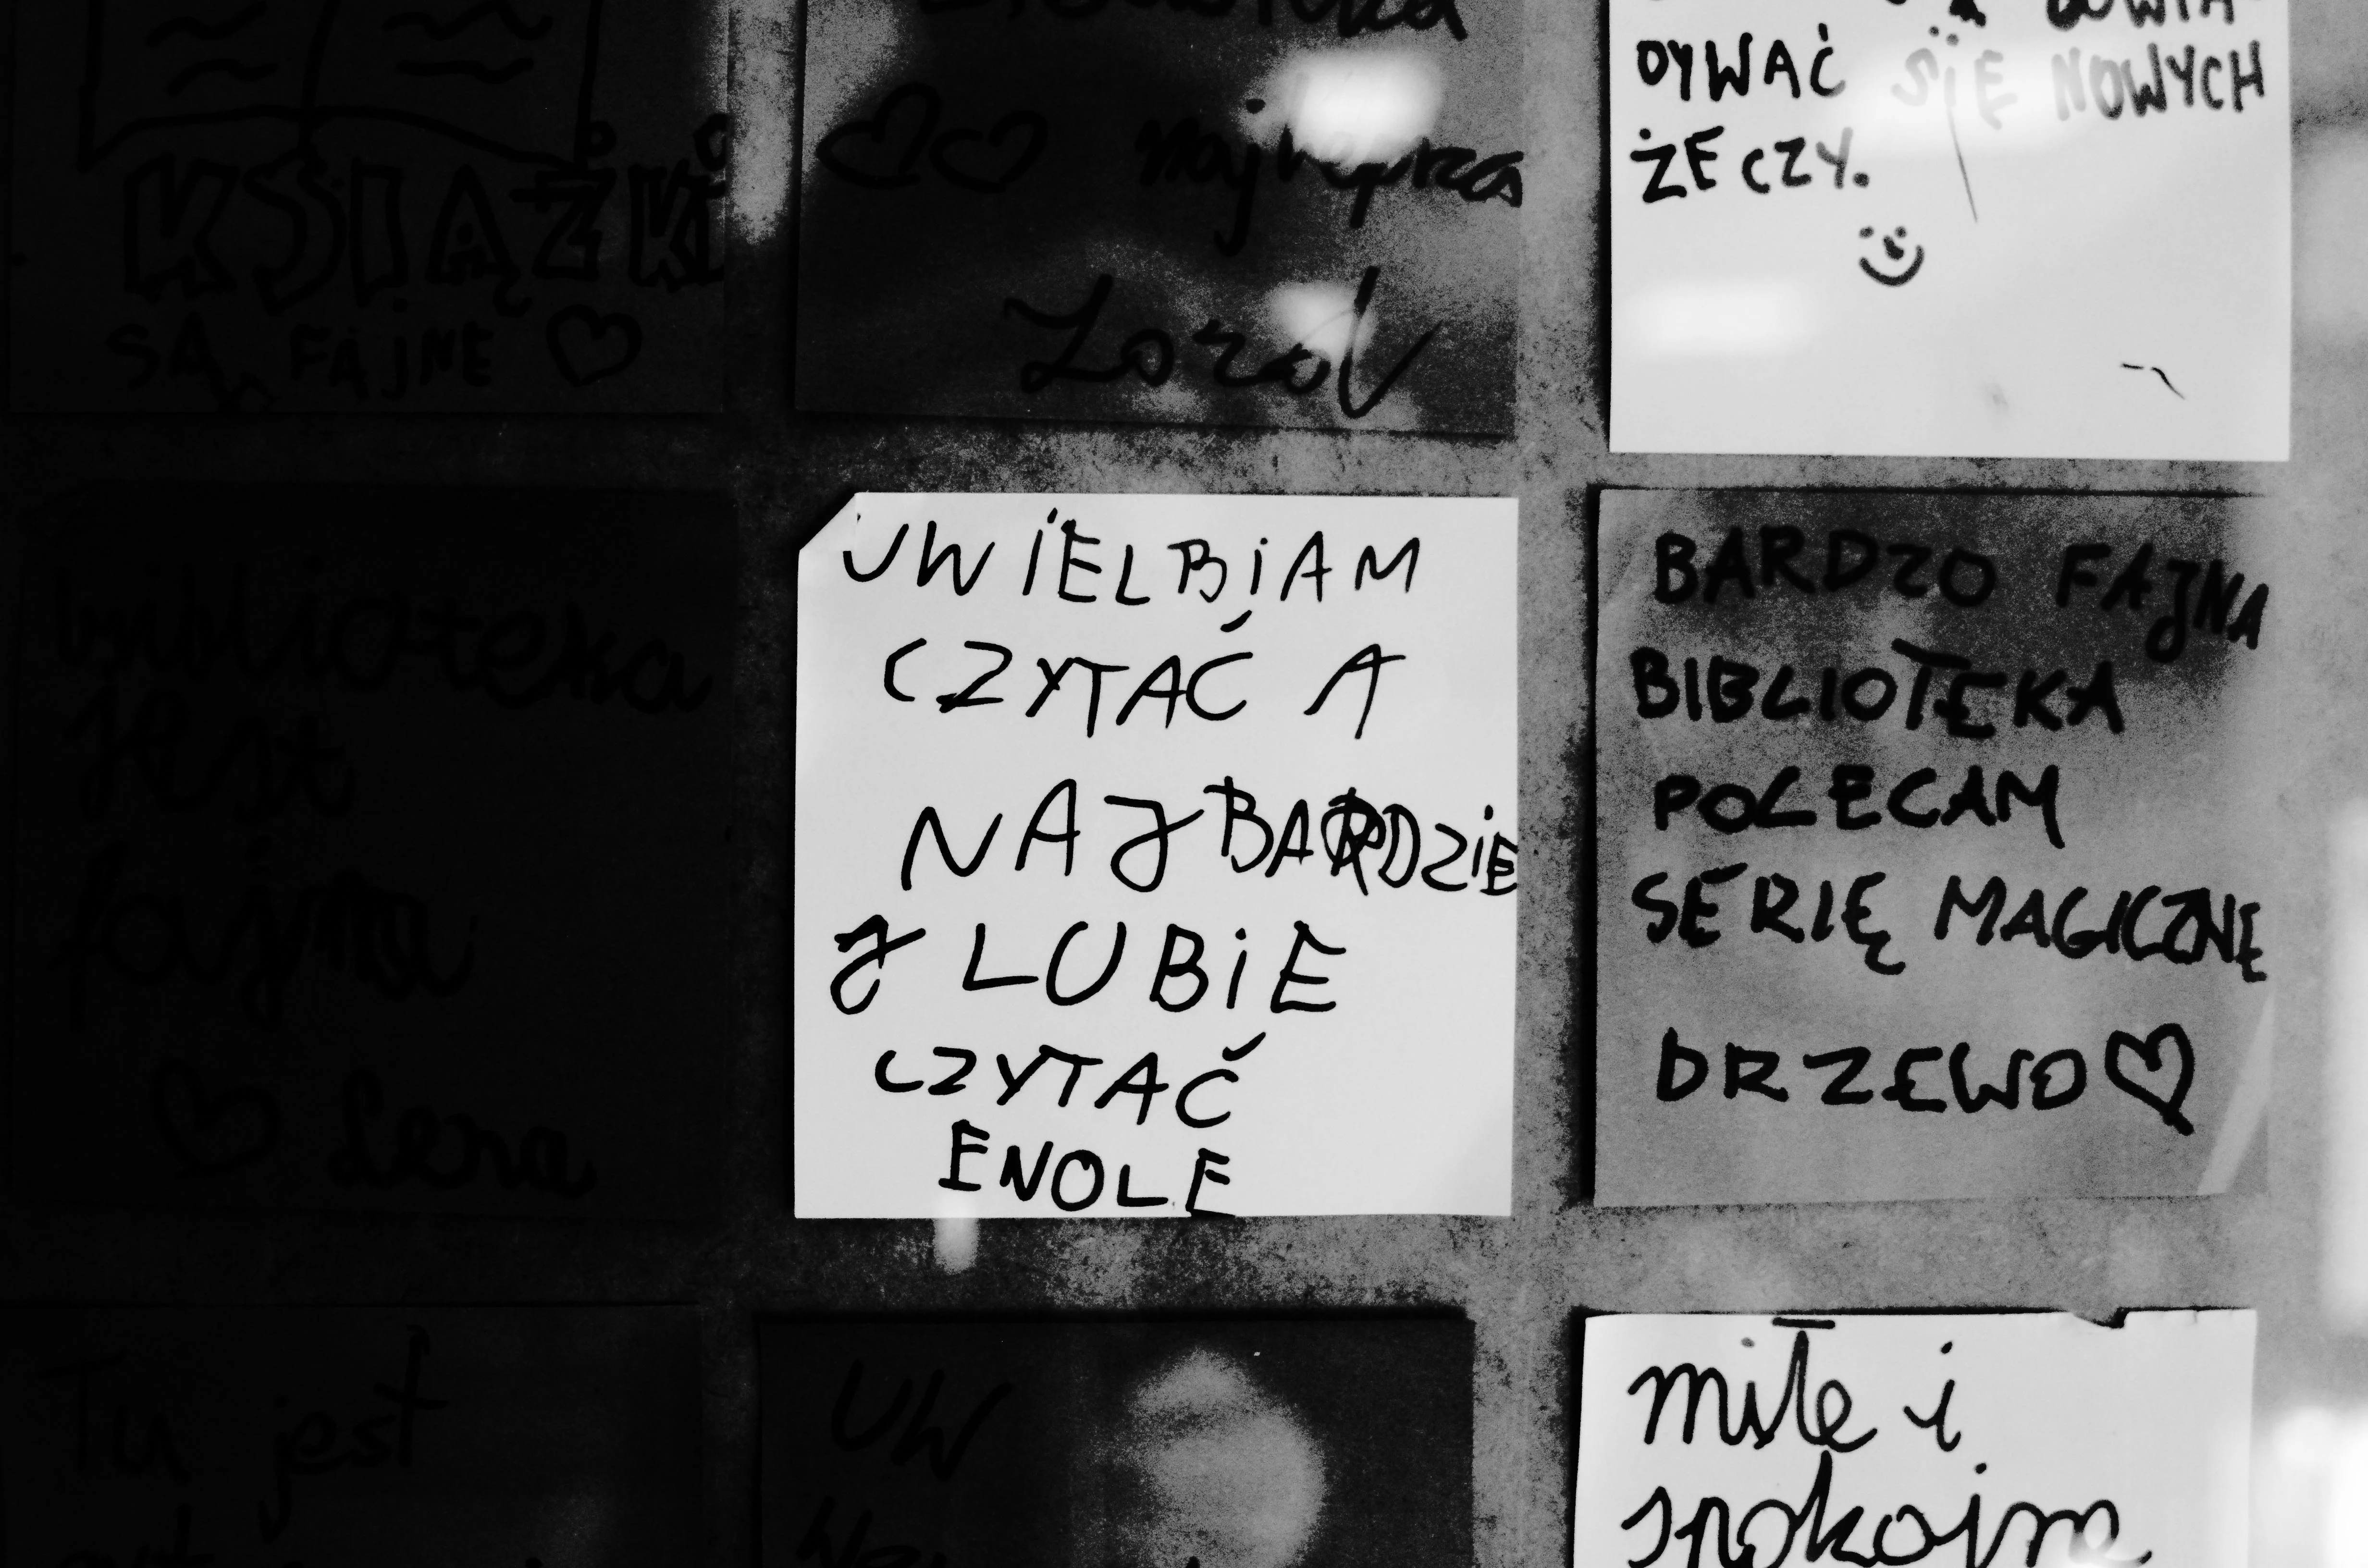 KSIĄŻKI
SĄ FAJNE
najlepsza
DYWAĆ SIĘ NOWYCH
ŻECZY.
biblioteka
jest
fajna
Lena
UWIELBIAM
CZYTAĆ A
NAJBARDZIE
J LUBIE
CZYTAĆ
ENOLE
BARDZO FAJNA
BIBLIOTEKA
POLECAM
SERIĘ MAGICZNE
DRZEWO
Tu jest
UW
miłe i